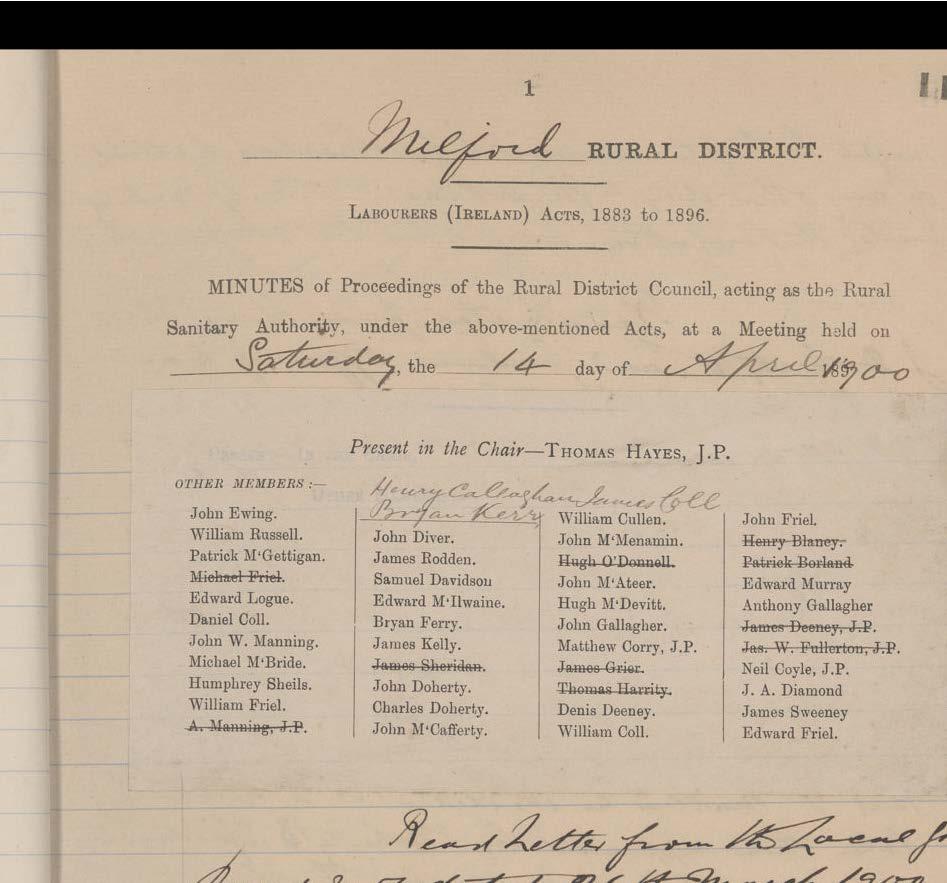 1
Milford RURAL DISTRICT.
LABOURERS (IRELAND) ACTS, 1883 to 1896.
MINUTES of Proceedings of the Rural District Council, acting as the Rural
Sanitary Authority, under the above-mentioned Acts, at a Meeting held on
Saturday, the 14 day of April 1900
Present in the Chair—THOMAS HAYES, J.P.
OTHER MEMBERS :—
Henry Callaghan James Coll
Bryan Kerr
John Ewing.
William Russell.
Patrick M'Gettigan.
Michael Friel.
Edward Logue.
Daniel Coll.
John W. Manning.
Michael M'Bride.
Humphrey Sheils.
William Friel.
A. Manning, J.P.
John Diver.
James Rodden.
Samuel Davidson
Edward M'Ilwaine.
Bryan Ferry.
James Kelly.
James Sheridan.
John Doherty.
Charles Doherty.
John M'Cafferty.
William Cullen.
John M'Menamin.
Hugh O'Donnell.
John M'Ateer.
Hugh M'Devitt.
John Gallagher.
Matthew Corry, J.P.
James Grier.
Thomas Harrity.
Denis Deeney.
William Coll.
John Friel.
Henry Blaney.
Patrick Borland
Edward Murray
Anthony Gallagher
James Deeney, J.P.
Jas. W. Fullerton, J.P.
Neil Coyle, J.P.
J. A. Diamond
James Sweeney
Edward Friel.
Read Letter from the Local
March 1900